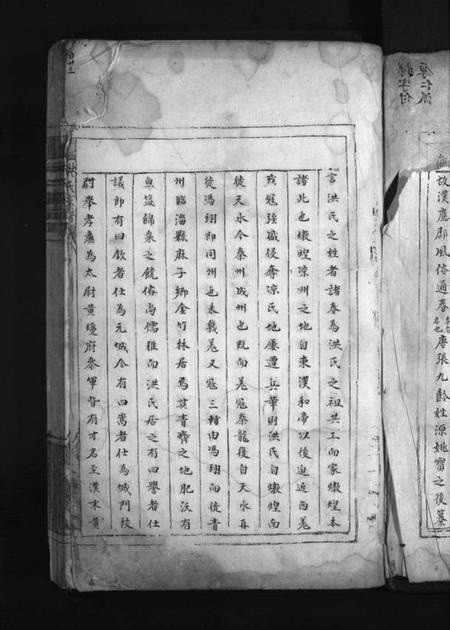 厚仁派
故漢應郡風俗通春
唐張九齡姓源姚甯之後纂
言洪氏之姓者諸春為洪氏之祖共工向家燉煌本
諸此也燉煌涼州之地自東漢和帝以後迫近西羌
戎寇強臧侵奪涼氏地屢遭兵革則洪氏自燉煌而
徙天水今秦州成州也既而羌寇秦隴復自天水再
徙馮翊即同州也未幾羌又寇三輔由馮翊而後青
州臨淄縣麻子鄉金竹林居焉其青齊之地肥沃有
魚鹽綿枲之饒俗尚儒雅而洪氏居之有曰譽者仕
議郎有曰欽者仕為元城令有曰嵩者仕為城門校
尉舉孝廉為太尉黃瓊府參軍皆有才名至漢末黃